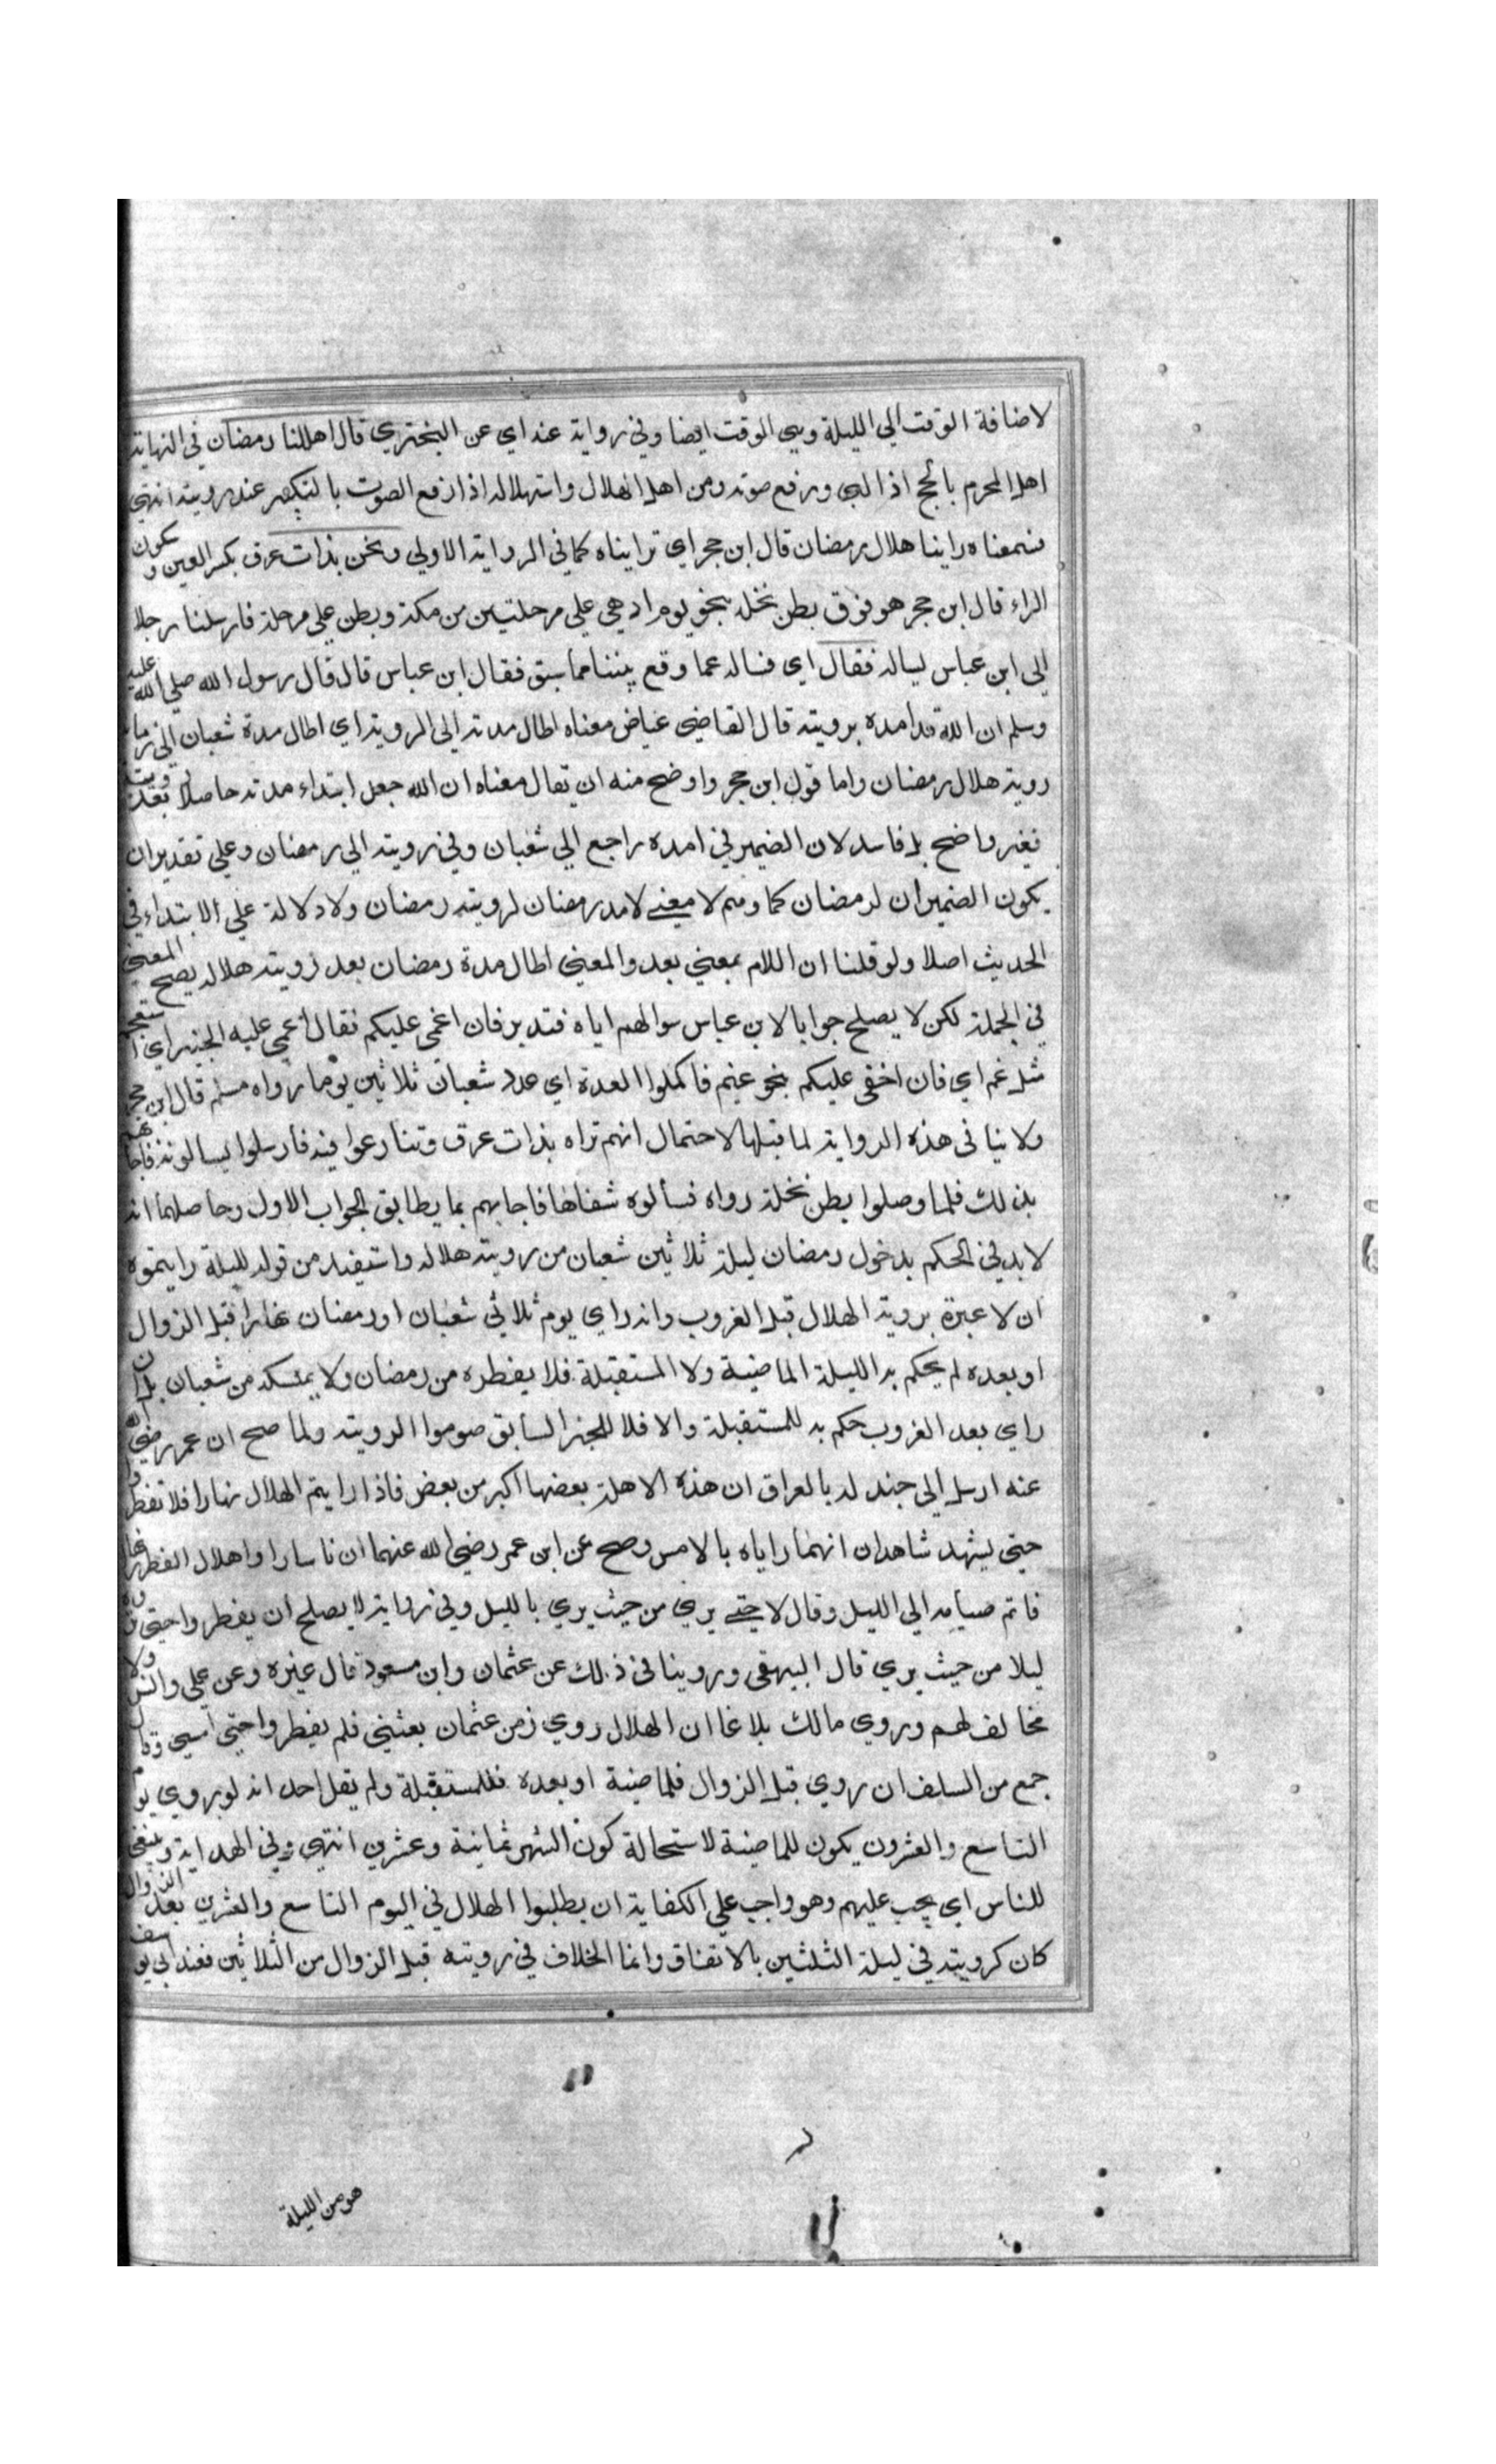 لاضافة الوقت الي الليلة وهي الوقت ايضا وفي رواية عنه اي عن البختري قال اهللنا رمضان في النهاية
اهل المحرم بالحج اذا لبي ورفع صوته ومن اهل الهلال واستهلاله اذا رفع الصوت بالتكبير عند رويته انتهي
فمعناه راينا هلال رمضان قال ابن حجر اي تراينآه كما في الرواية الاولي ونحن بذات عرق بكسر العين وسكون
الراء قال ابن حجر هو فوق بطن نخلة بنحو يوم اذ هي علي مرحلتين من مكة وبطن علي مرحلة فارسلنا رجلا
الي ابن عباس يساله فقال اي فساله عما وقع بيننا مما سبق فقال ابن عباس قال قال رسول الله صلي الله عليه
وسلم ان الله قد امده برويته قال القاضي عياض معناه اطال مدته الي الروية اي اطال مدة شعبان الي زمان
روية هلال رمضان واما قول ابن حجر واوضح منه ان يقال معناه ان الله جعل ابتداء مدته حاصلا بعد رويته
فغير واضح بل فاسد لان الضمير في امده راجع الي شعبان وفي رويته الي رمضان وعلي تقدير ان
يكون الضميران لرمضان كما وهم لا معني لامد رمضان لرويته رمضان ولا دلالة علي الابتداء في
الحديث اصلا ولو قلنا ان اللام بمعني بعد والمعني اطال مدة رمضان بعد روية هلاله يصح المعني
في الجملة لكن لا يصلح جوابا لابن عباس سوالهم اياه فتدبر فان اغمي عليكم فقال اغمي عليه الخبر اي استعجم
مثل غم اي فان اخفي عليكم بنحو غيم فاكملوا العدة اي عدد شعبان ثلاثين يوما رواه مسلم قال ابن حجر
ولا ينافي هذه الرواية لما قبلها لاحتمال انهم تراه بذات عرق وتنازعوا فيه فارسلوا يسالونه فاجابهم
بذلك فلما وصلوا بطن نخلة رواه فسألوه شفاها فاجابهم بما يطابق الجواب الاول وحاصلهما انه
لا بد في الحكم بدخول رمضان ليلة ثلاثين شعبان من روية هلاله واستفيد من قوله لليلة رايتموه
ان لا عبرة بروية الهلال قبل الغروب وانه راي يوم ثلاثي شعبان او رمضان نهارا قبل الزوال
او بعده لم يحكم به لليلة الماضية ولا المستقبلة فلا يفطره من رمضان ولا يمسكه من شعبان بل ان
راي بعد الغروب حكم به للمستقبلة والا فلا للخبر السابق صوموا الرويته ولما صح ان عمر رضي الله
عنه ارسل الي جند له بالعراق ان هذه الاهلة بعضها اكبر من بعض فاذا رايتم الهلال نهارا فلا تفطروا
حتي يشهد شاهدان انهما راياه بالامس وصح عن ابن عمر رضي الله عنهما ان ناسا راوا هلال الفطر نهارا
فاتم صيامه الي الليل وقال لا حتي يري من حيث يري بالليل وفي رواية لا يصلح ان يفطروا حتي يروه
ليلا من حيث يري قال البيهقي وروينا في ذلك عن عثمان وابن مسعود قال غيره وعن علي وانس ولا
مخالف لهم وروي مالك بلاغا ان الهلال روي زمن عثمان بعشي فلم يفطر واحتي امسي وقال
جمع من السلف ان روي قبل الزوال فللماضية او بعده فللمستقبلة ولم يقل احد انه لو روي يوم
التاسع والعشرون يكون للماضية لاستحالة كون الشهر ثمانية وعشرين انتهي وفي الهداية وينبغي
للناس اي يجب عليهم وهو واجب علي الكفاية ان يطلبوا الهلال في اليوم التاسع والعشرين بعد الزوال
كان كرويته في ليلة الثلثين بالاتفاق وانما الخلاف في رويته قبل الزوال من الثلاثين فعند ابي يوسف
هو من الليلة